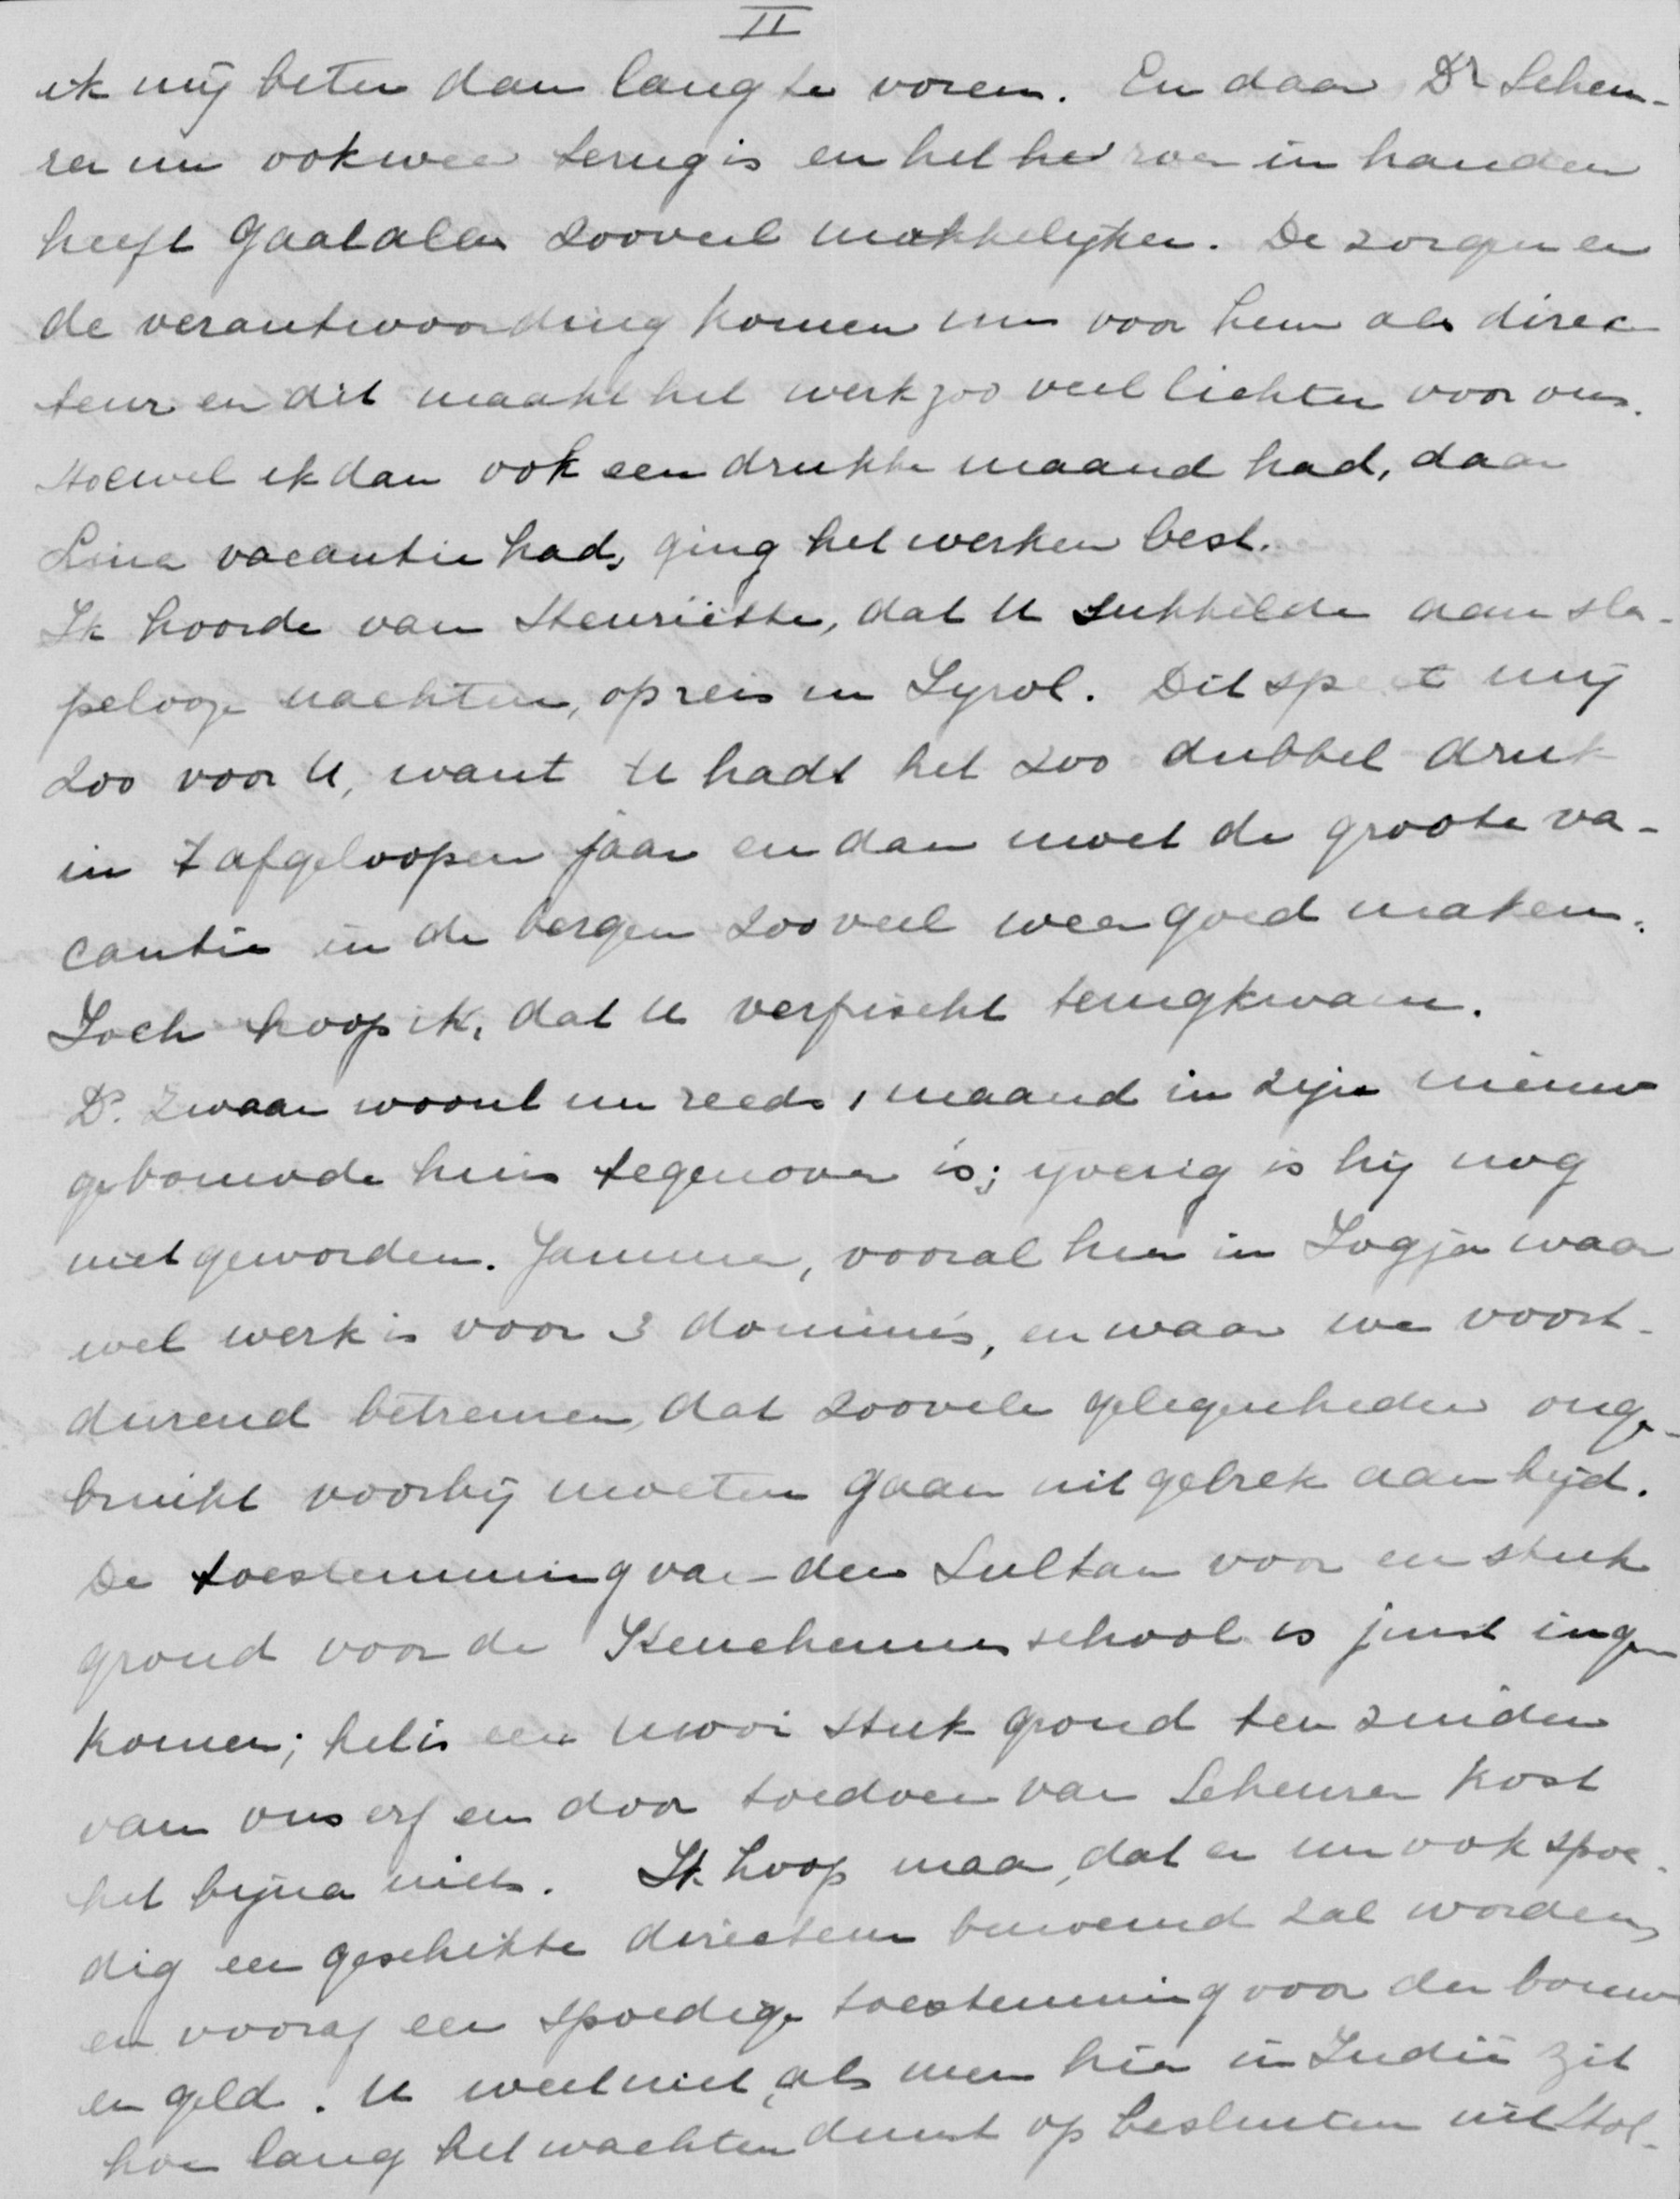 II
ik mij beter dan lang te voren. En daar Dr Scheu-
rer nu ook weer terug is en het heer roer in handen
heeft gaat alles zooveel makkelijker. De zorgen en
de verantwoording komen nu voor hem als direc-
teur en dit maakt het werk zoo veel lichter voor ons.
Hoewel ik dan ook een drukke maand had, daar
Lina vacantie had, ging het werken best.
Ik hoorde van Henriëtte, dat U sukkelde aan sla-
pelooze nachten, op reis in Tyrol. Dit speet mij
zoo voor U, want U hadt het zoo dubbel druk
in 't afgeloopen jaar en dan moet de groote va-
cantie in de bergen zooveel weer goed maken.
Toch hoop ik, dat U verfrischt terugkwam.
Ds. Zwaan woont nu reeds 1 maand in zijn nieuw
gebouwde huis tegenover is; ijverig is hij nog
niet geworden. Jammer, vooral hier in Jogja waar
wel werk is voor 3 dominés, en waar we voort-
durend betreuren, dat zoovele gelegenheden onge-
bruikt voorbij moeten gaan uit gebrek aan tijd.
De toestemming van den Sultan voor een stuk
grond voor de Keucheniusschool is juist inge
komen; het is een mooi stuk grond ten zuiden
van ons erf en door toedoen van Scheurer kost
het bijna niets. Ik hoop maar, dat er nu ook spoe-
dig een geschikte directeur benoemd zal worden,
en vooraf een spoedige toestemming voor den bouw
en geld. U weet niet, als men hier in Indië zit
hoe lang het wachten duurt op besluiten uit Hol-